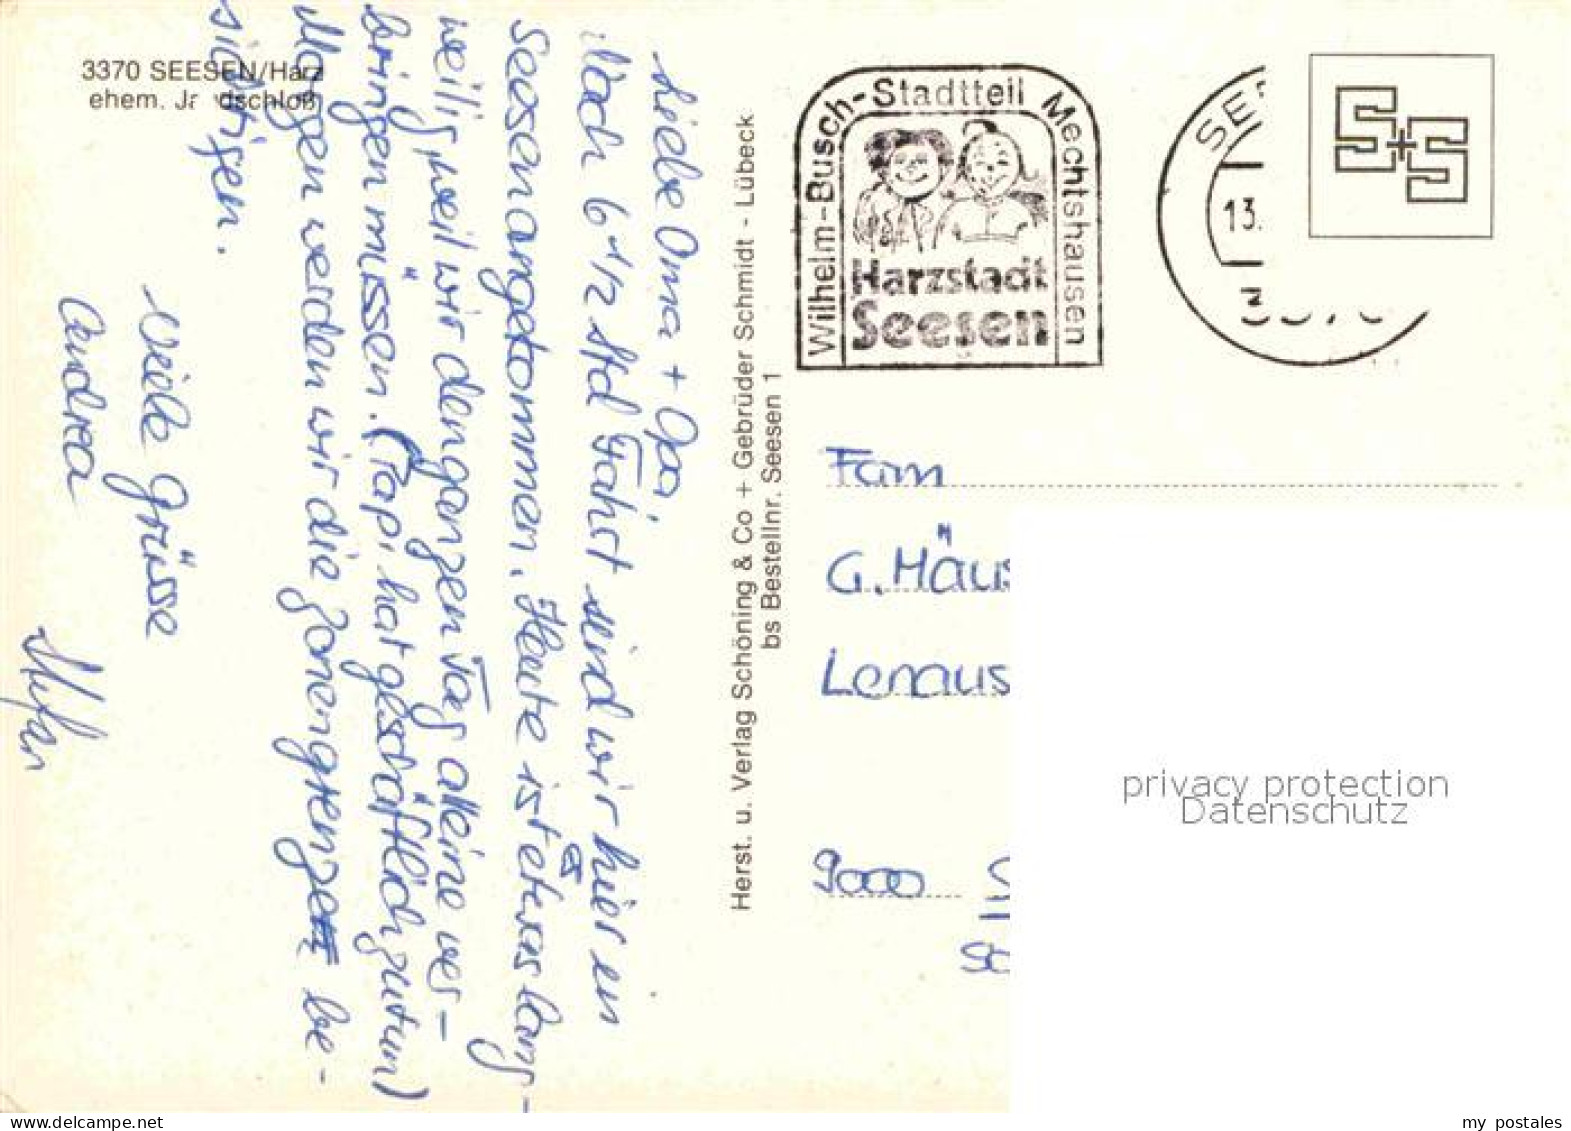 3370 SEESEN/Harz
ehem. Jagdschloß
Liebe Oma + Opa,
Nach 6 1/2 Std Fahrt sind wir hier in
Seesen angekommen. Heute ist es etwas lang-
weilig, weil wir den ganzen Tag alleine ver-
bringen müssen. (Papi hat geschäftlich zu tun)
Morgen werden wir die Zonengrenze be-
sichtigen.
Viele Grüsse
Andrea
Stefan
Herst. u. Verlag Schöning & Co + Gebrüder Schmidt - Lübeck
bs Bestellnr. Seesen 1
Wilhelm-Busch-Stadtteil Mechtshausen
Harzstadt
Seesen
SEE
13.
S+S
Fam
G. Häus
Lenaus
9000
privacy protection
Datenschutz
www.delcampe.net
my_postales